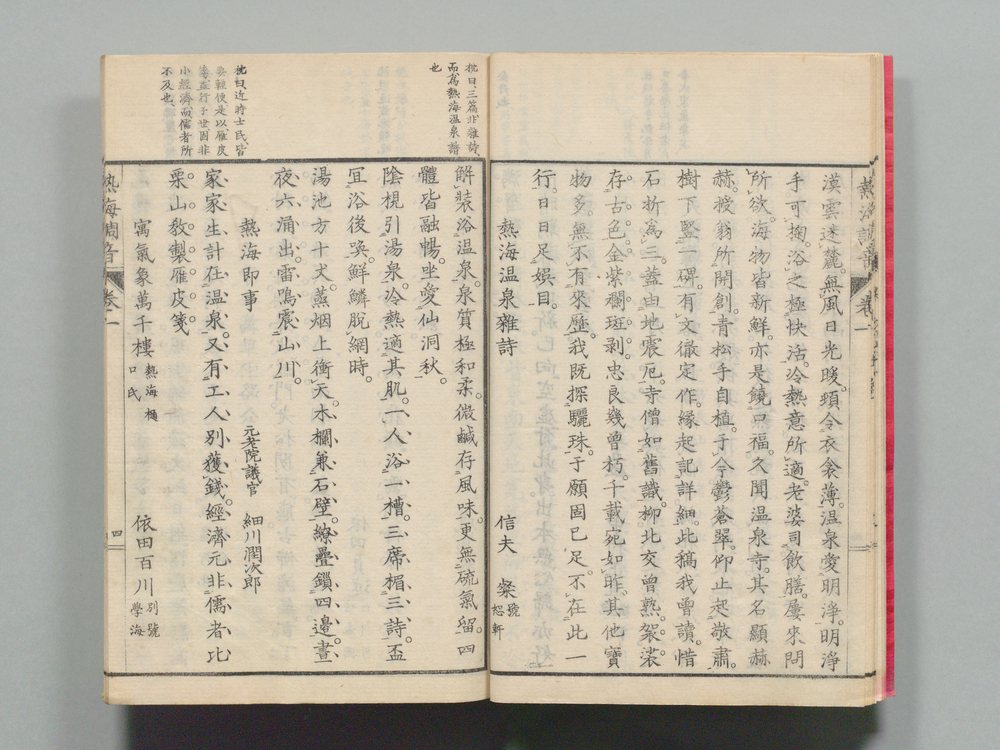 漠雲迷麓。無風日光暖。頊令衣衾薄。温泉愛明淨。明淨
手可掬。浴之極快活。冷熱意所適。老婆司飲膳。屢來問
所欲。海物皆新鮮。亦是饒口福。久聞温泉寺。其名顯赫
赫。祓翁所開創。青松手自植。于今鬱蒼翠。仰止起敬肅。
樹下竪一碑。有文徹定作。緣起記詳細。此稿我曾讀。惜
石折爲三。蓋由地震厄。寺僧如舊識。柳北交曾熟。袈裟
存古色。金紫襴斑剥。忠良幾曾朽。千載宛如昨。其他寶
物多。無不有來歷。我既探驪珠。于願固已足。不在此一
行。日日足娯目。
熱海温泉雜詩
信夫 粲 號恕軒
枕曰三篇非雜詩、
而爲熱海温泉譜
也
解裝浴温泉。泉質極和柔。微鹹存風味。更無硫氣留。四
體皆融暢。坐愛仙洞秋。
陰梘引湯泉。冷熱適其肌。一人浴一槽。三席楣三詩。盃
宜浴後喚。鮮鱗脱網時。
湯池方十丈。蒸烟上衝天。木欄兼石壁。繚疊鎖四邊。晝
夜六涌出。雷鳴震山川。
熱海即事
元老院議官 細川潤次郎
家家生計在温泉。又有工人別獲錢。經濟元非儒者比
栗山敎製雁皮箋。
枕曰近時士民、皆
雁皮
行于世固非
小經濟而儒者所
不及也、
寓氣象萬千樓 熱海樋口氏
依田百川 別號學海
熱海調音 卷一
四